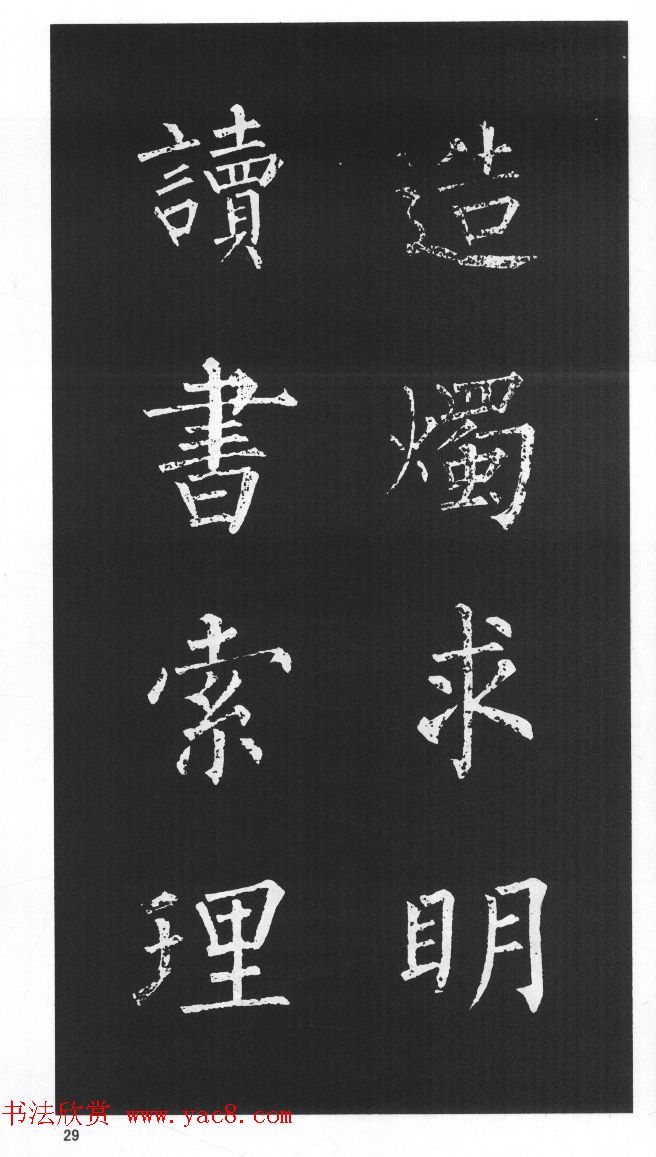 造燭求明
讀書索理
书法欣赏 www.yac8.com
29